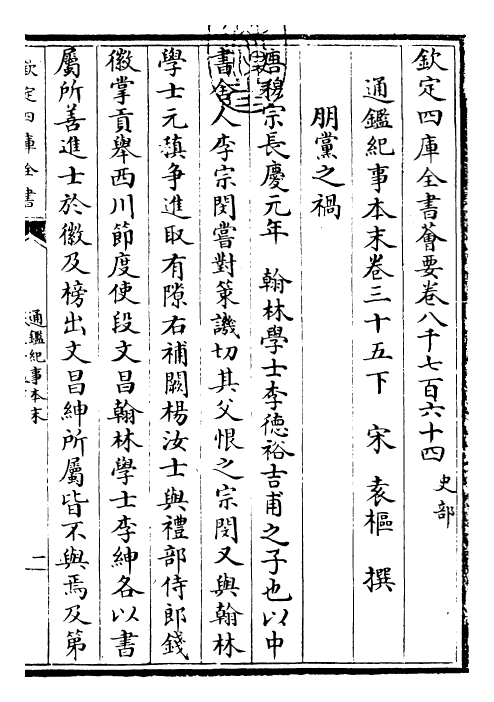 欽定四庫全書薈要卷八千七百六十四 史部
通鑑紀事本末卷三十五下 宋 袁樞 撰
朋黨之禍
唐穆宗長慶元年 翰林學士李德裕吉甫之子也以中
書舍人李宗閔嘗對策譏切其父恨之宗閔又與翰林
學士元稹爭進取有隙右補闕楊汝士與禮部侍郎錢
徽掌貢舉西川節度使段文昌翰林學士李紳各以書
屬所善進士於徽及榜出文昌紳所屬皆不與焉及第
欽定四庫全書
通鑑紀事本末